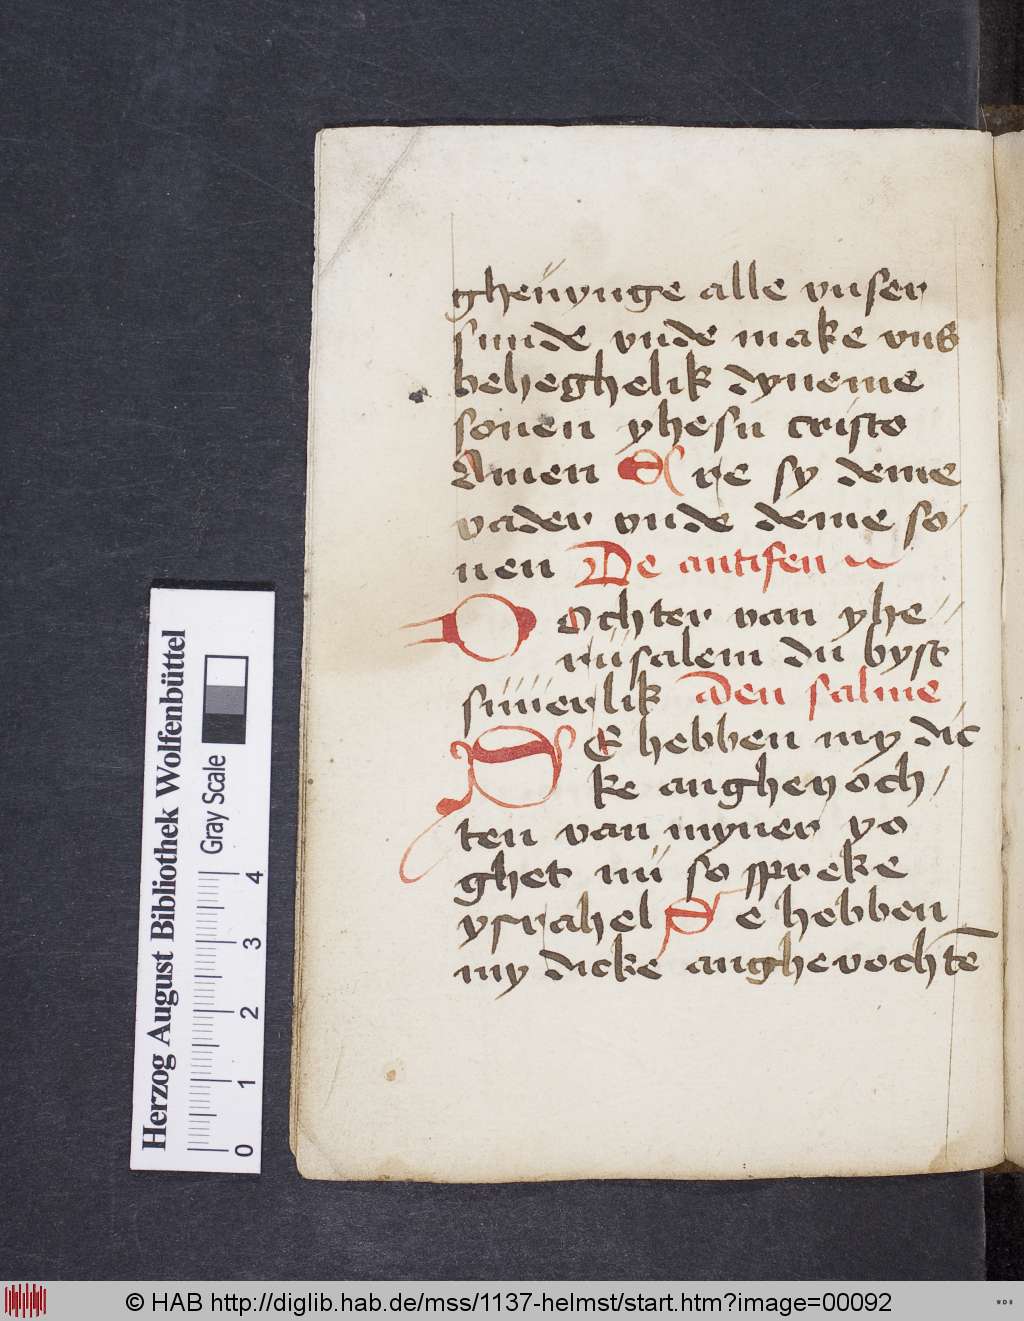 gheuynge alle vnser
sunde vnde make vns
beheghelik dyneme
sonen yhesu cristo
Amen Ere sy deme
vader vnde deme so/
nen De antifen
DOchter van yhe//
rusalem du byst
suuerlik Den salme
SE hebben my dic
ke anghevoch/
ten van myner yo
ghet nu so spreke
ysrahel Se hebben
my dicke anghevochtē
Herzog August Bibliothek Wolfenbüttel
Gray Scale
0 1 2 3 4
© HAB http://diglib.hab.de/mss/1137-helmst/start.htm?image=00092